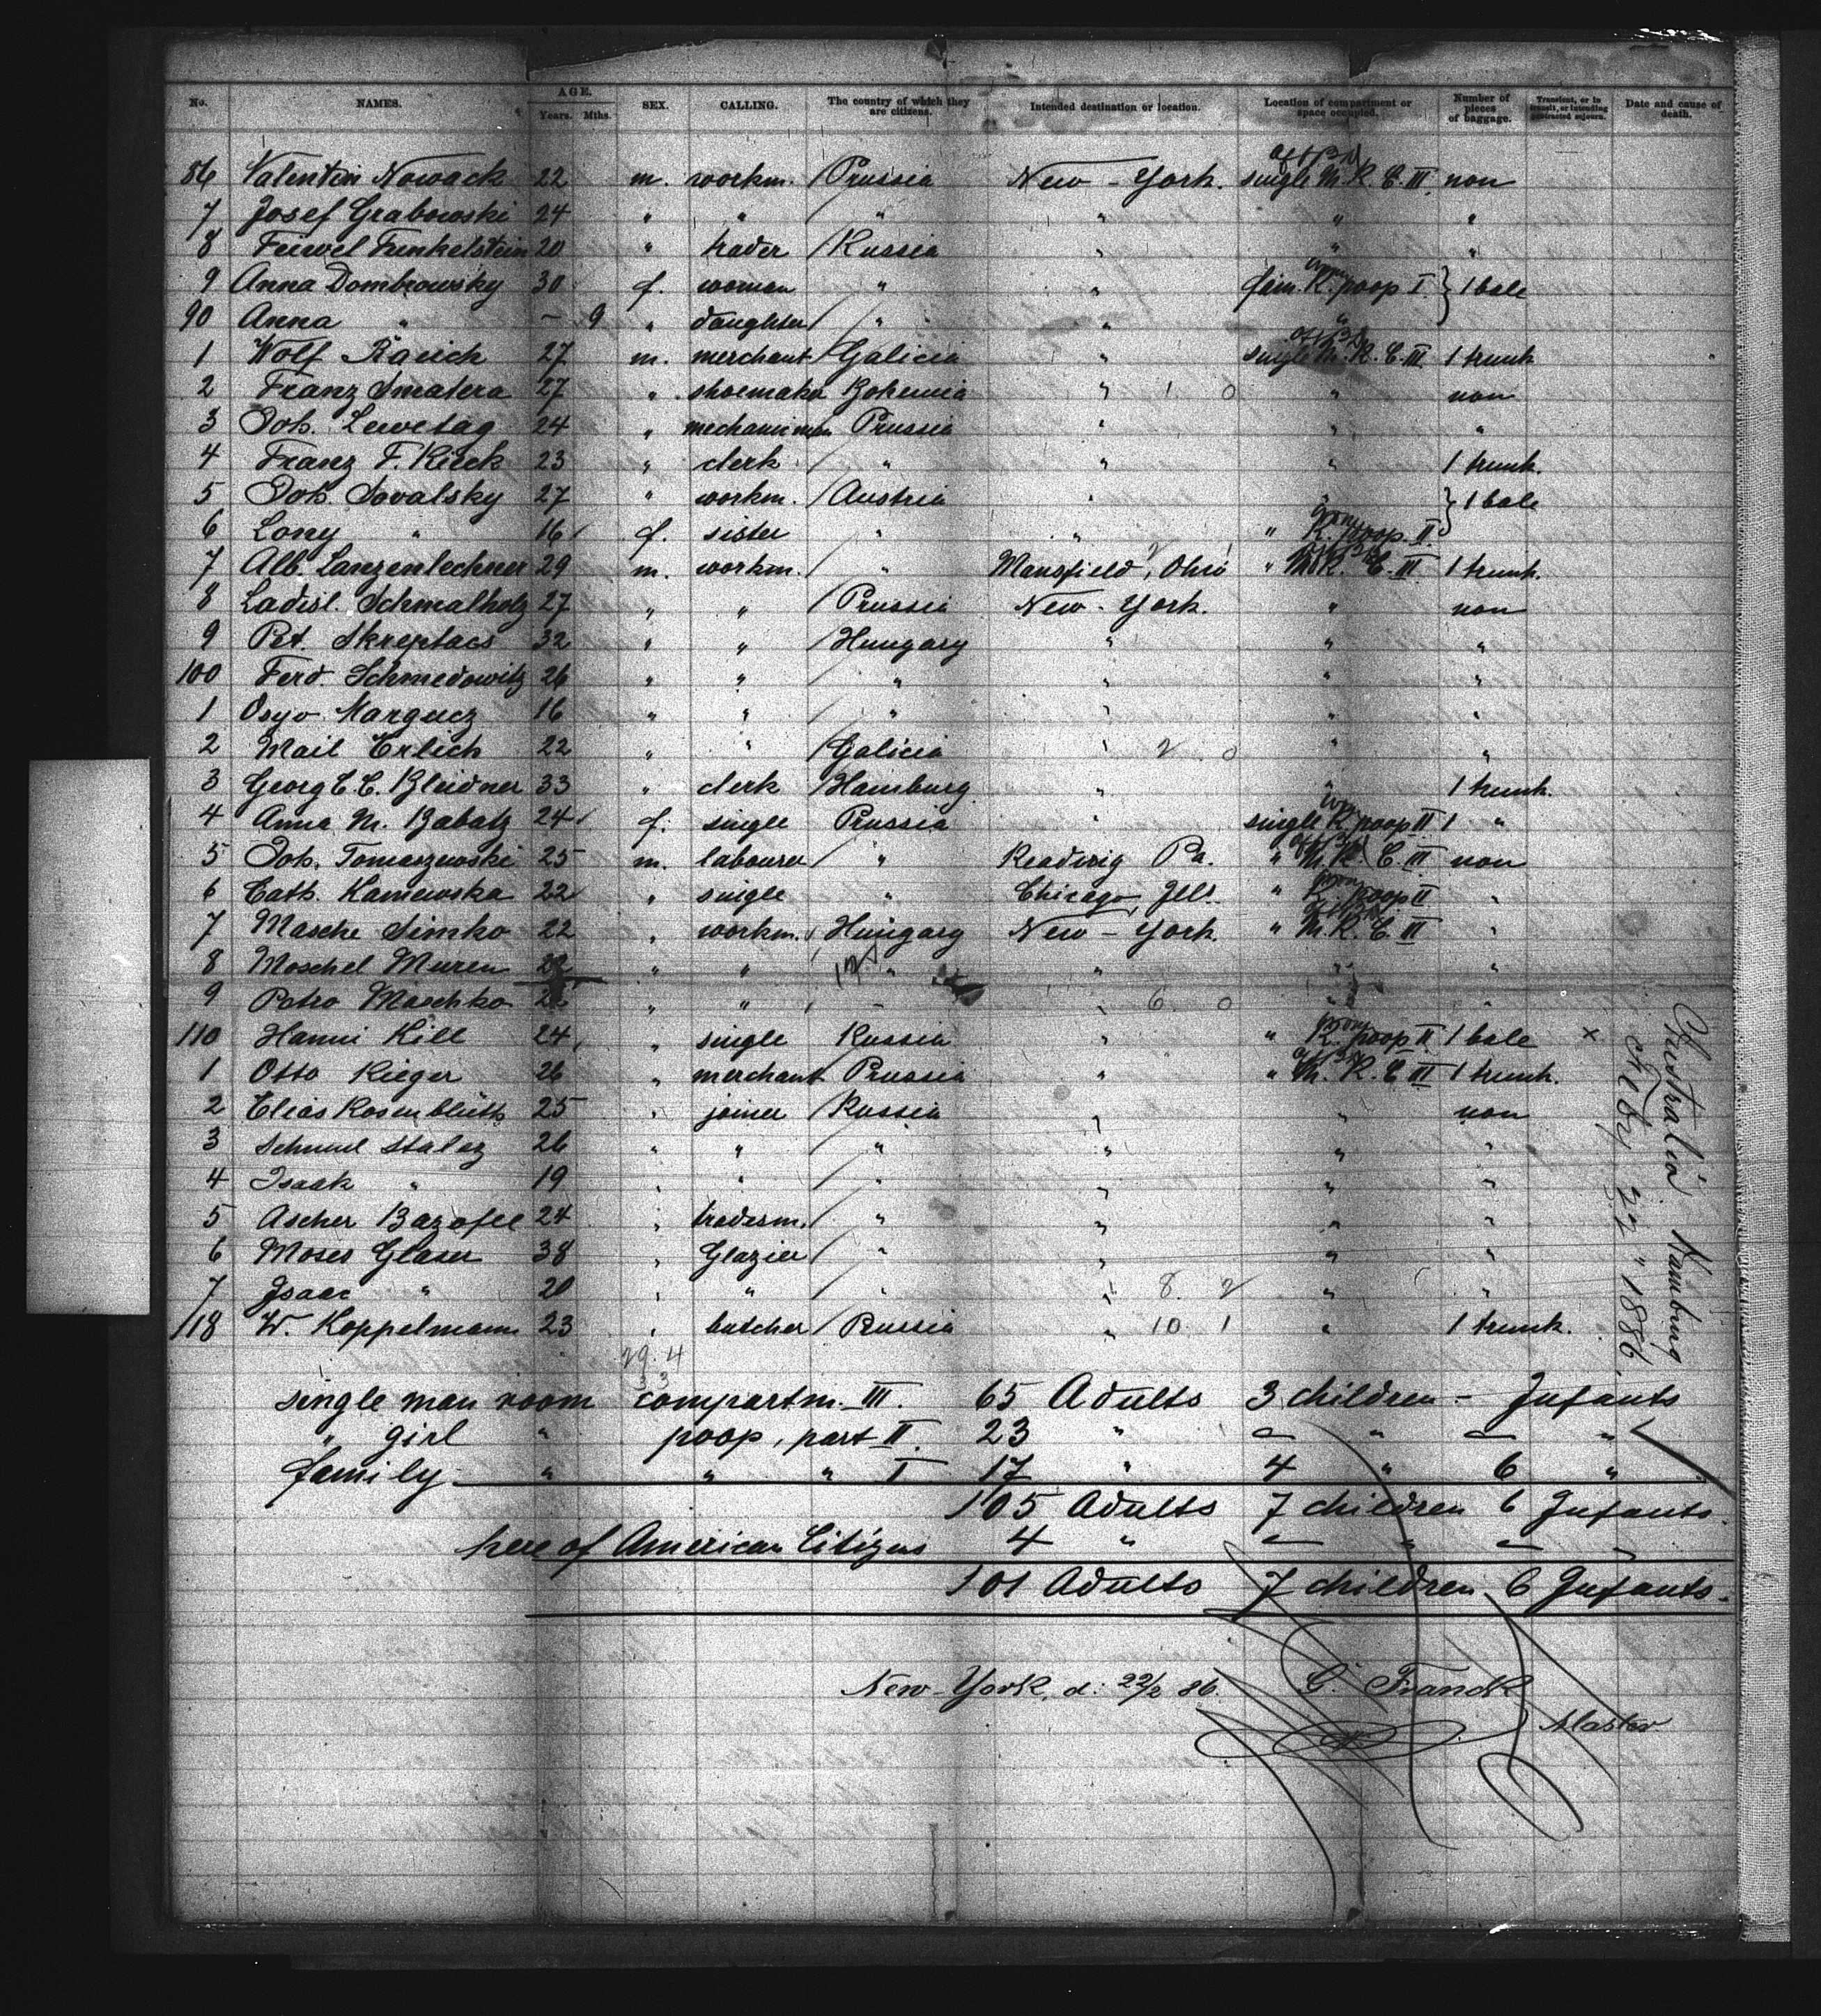 No. NAMES. AGE. Years. Mths. SEX. CALLING. The country of which they are citizens. Intended destination or location. Location of compartment or space occupied. Number of pieces of baggage. Transient, or in transit, or intending protracted sojourn. Date and cause of death.
86 Valentin Nowack 22 m. workm. Prussia New-York. single M. R. C. III. non
7 Josef Grabowski 24 " " " " " "
8 Feiwel Funkelstein 20 " trader Russia " " "
9 Anna Dombrowsky 30 f. woman " " fam. R. poop I } 1 bale
90 Anna " - 9 " daughter " " "
1 Wolf Rauch 27 m. merchant Galicia " single M. R. C. III. 1 trunk
2 Franz Smatera 27 " shoemaker Bohemia " 1 0 " non
3 Joh. Lewetag 24 " Prussia " " "
4 Franz F. Kirck 23 " clerk " " " 1 trunk.
5 Joh. Sovalsky 27 " workm. Austria " " } 1 bale
6 Lony " 16 f. sister " " " R. poop. II.
7 Alb. Lanzenlechner 29 m. workm. " Mansfield, Ohio " M. R. C. III 1 trunk.
8 Ladisl. Schmalholz 27 " " Prussia New-York. " non
9 Pet. Skreptacs 32 " " Hungary " " "
100 Ferd. Schmedowitz 26 " " " " " "
1 Osyo Margucz 16 " " " " " "
2 Mail Erlich 22 " " Galicia " 2 0 " "
3 Georg C. C. Bleidner 33 " clerk Hamburg " " 1 trunk.
4 Anna M. Babatz 24 f. single Prussia " single R. poop II 1 "
5 Joh. Tomaszewski 25 m. labourer " Reading Pa. " M. R. C. III non
6 Cath. Kamewska 22 " single " Chicago, Ills. " R. poop II "
7 Masche Simko 22 " workm. Hungary New-York. " M. R. C. III "
8 Moschel Muren 22 " " " " " "
9 Petro Maschko " " " " 6 0 " "
110 Hanni Kill 24 " single Russia " " R. poop II 1 bale x
1 Otto Rieger 26 " merchant Prussia " " M. R. C. III 1 trunk.
2 Elias Rosenblüth 25 " joiner Russia " " non
3 Schmul Stalez 26 " " " " " "
4 Isaak " 19 " " " " " "
5 Ascher Bazofee 24 " tradesm. " " " "
6 Moses Glaser 38 " Glazier " " " "
7 Isaac " 20 " " " " 8. 2 " "
118 W. Koppelmann 23 " butcher Russia " 10 1 " 1 trunk.
29. 4
33
single man room compartm. III. 65 Adults 3 children - Infants
" girl " poop, part II. 23 " - " - "
family " " " I 17 " 4 " 6 "
105 Adults 7 children 6 Infants.
here of American Citizens 4 " - " - "
101 Adults 7 children 6 Infants.
New-York, d. 22/2 86. C. Franck
Master
Australia Hamburg
Feby 22" 1886